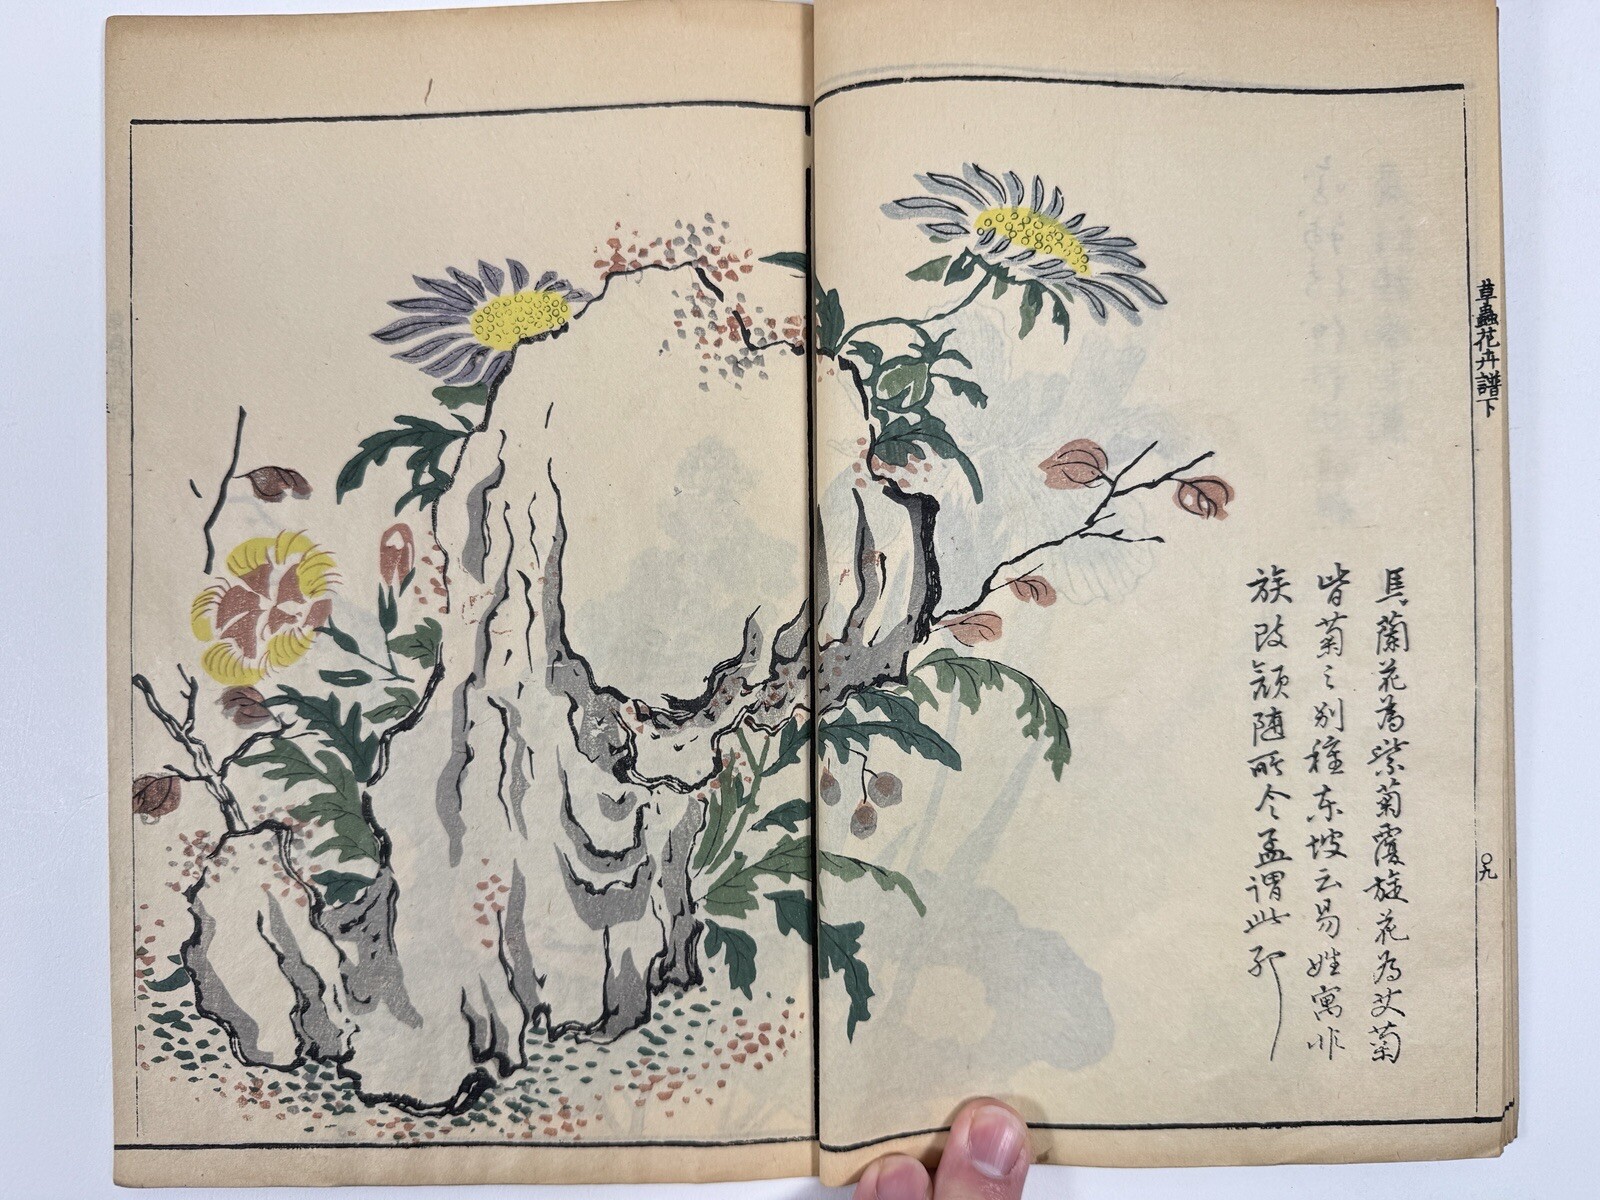 草蟲花卉譜下
〇九
馬蘭花為紫菊覆旋花為艾菊
皆菊之別種东坡云易姓寓非
族改顏随所令孟谓此耶